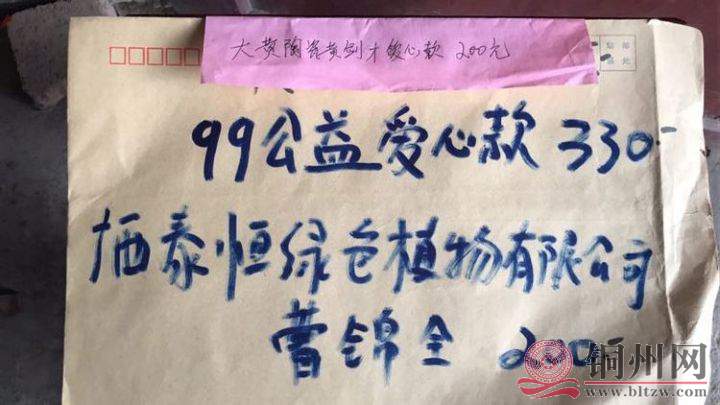 大黄陶瓷黄剑才爱心款 200元
贴邮
票处
99公益爱心款 330-
栖泰恒绿色植物有限公司
曹锦全 200-
铜州网
www.bltzw.com